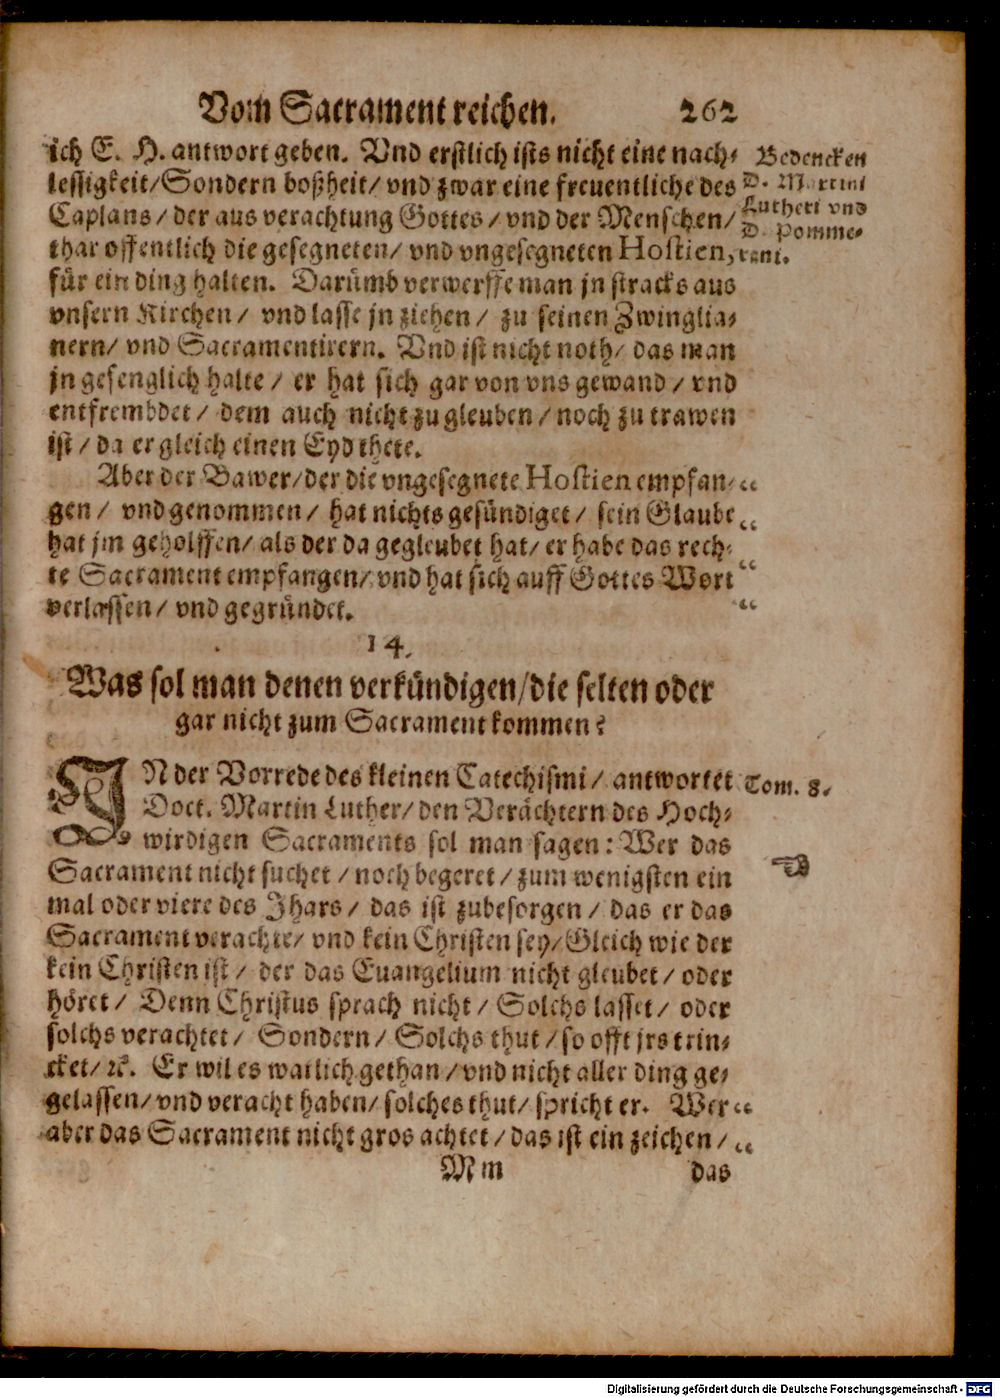 Vom Sacrament reichen. 262
ich E. H. antwort geben. Vnd erstlich ists nicht eine nach-
lessigkeit/ Sondern boßheit/ vnd zwar eine freuentliche des
Caplans/ der aus verachtung Gottes/ vnd der Menschen/
thar offentlich die gesegneten/ vnd vngesegneten Hostien,
für ein ding halten. Darümb verwerffe man jn stracks aus
vnsern Kirchen/ vnd lasse jn ziehen/ zu seinen Zwinglia-
nern/ vnd Sacramentirern. Vnd ist nicht noth/ das man
jn gefenglich halte/ er hat sich gar von vns gewand/ vnd
entfrembdet/ dem auch nicht zu gleuben/ noch zu trawen
ist/ da er gleich einen Eyd thete.
Bedencken
D. Martini
Lutheri vnd
D. Pomme-
rani.
Aber der Bawer/ der die vngesegnete Hostien empfan- "
gen/ vnd genommen/ hat nichts gesündiget/ sein Glaube "
hat jm geholffen/ als der da gegleubet hat/ er habe das rech-
te Sacrament empfangen/ vnd hat sich auff Gottes Wort "
verlassen/ vnd gegründet. "
14.
Was sol man denen verkündigen/ die selten oder
gar nicht zum Sacrament kommen?
IN der Vorrede des kleinen Catechismi/ antwortet
Doct. Martin Luther/ den Verächtern des Hoch-
wirdigen Sacraments sol man sagen: Wer das
Sacrament nicht suchet/ noch begeret/ zum wenigsten ein
mal oder viere des Jhars/ das ist zubesorgen/ das er das
Sacrament verachte/ vnd kein Christen sey/ Gleich wie der
kein Christen ist/ der das Euangelium nicht gleubet/ oder
höret/ Denn Christus sprach nicht/ Solchs lasset/ oder
solchs verachtet/ Sondern/ Solchs thut/ so offt jrs trin-
cket/ ꝛc. Er wil es warlich gethan/ vnd nicht aller ding ge-
gelassen/ vnd veracht haben/ solches thut/ spricht er. Wer "
aber das Sacrament nicht gros achtet/ das ist ein zeichen/ "
Tom. 8.
☜
Mm das
Digitalisierung gefördert durch die Deutsche Forschungsgemeinschaft - DFG